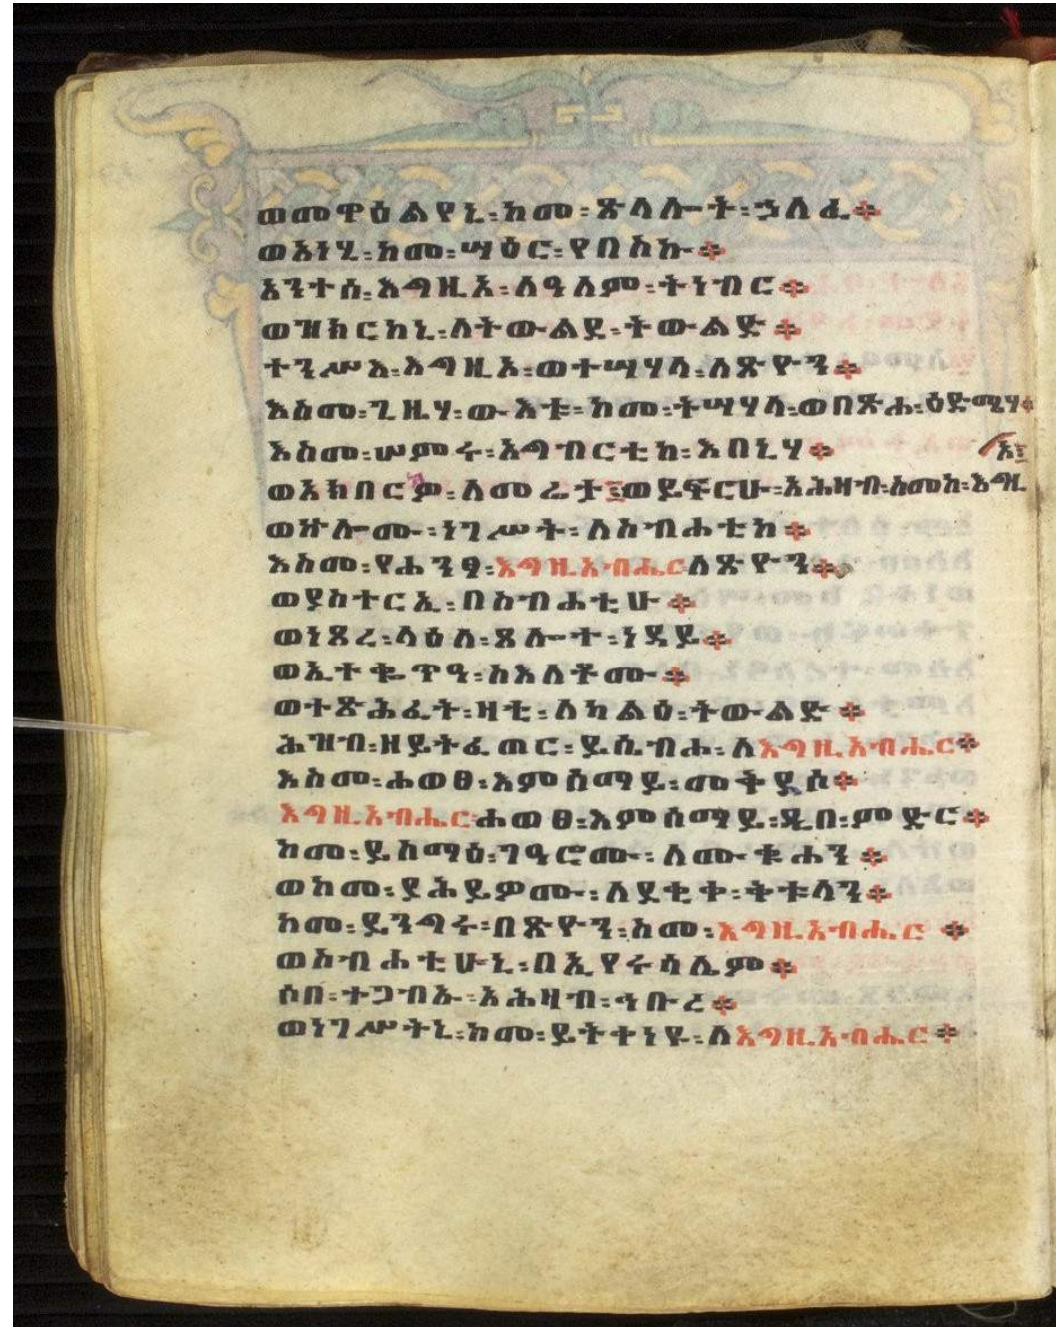 ወመዋዕልየኒ፡ከመ፡ጽላሎት፡ኃለፈ፨
ወአነሂ፡ከመ፡ሣዕር፡የበስኩ፨
አንተሰ፡እግዚኦ፡ለዓለም፡ትነብር፨
ወዝክርከኒ፡ለትውልደ፡ትውልድ፨
ተንሥእ፡እግዚኦ፡ወተሣሃላ፡ለጽዮን፨
እስመ፡ጊዜሃ፡ውእቱ፡ከመ፡ትሣሃላ፡ወበጽሐ፡ዕድሜሃ፨
እስመ፡ሠምሩ፡አግብርቲከ፡እበኒሃ፨
ወአክበርዎ፡ለመሬታ፤ወይፍርሁ፡አሕዛብ፡ስመከ፡እግዚ
አ፤
ወኵሎሙ፡ነገሥት፡ለስብሐቲከ፨
እስመ፡የሐንፃ፡እግዚአብሔር፡ለጽዮን፨
ወያስተርኢ፡በስብሐቲሁ፨
ወነጸረ፡ላዕለ፡ጸሎተ፡ነዳይ፨
ወኢተቈጥዓ፡ስእለቶሙ፨
ወተጽሕፈት፡ዛቲ፡ለካልዕ፡ትውልድ፨
ሕዝብ፡ዘይትፈጠር፡ይሴብሖ፡ለእግዚአብሔር፨
እስመ፡ሐወፀ፡እምሰማይ፡መቅደሱ፨
እግዚአብሔር፡ሐወፀ፡እምሰማይ፡ዲበ፡ምድር፨
ከመ፡ይስማዕ፡ገዓሮሙ፡ለሙቁሐን፨
ወከመ፡ያሕይዎሙ፡ለደቂቀ፡ቅቱላን፨
ከመ፡ይንግሩ፡በጽዮን፡ስመ፡እግዚአብሔር፨
ወስብሐቲሁኒ፡በኢየሩሳሌም፨
ሶበ፡ተጋብኡ፡አሕዛብ፡ኅቡረ፨
ወነገሥትኒ፡ከመ፡ይትቀነዩ፡ለእግዚአብሔር፨